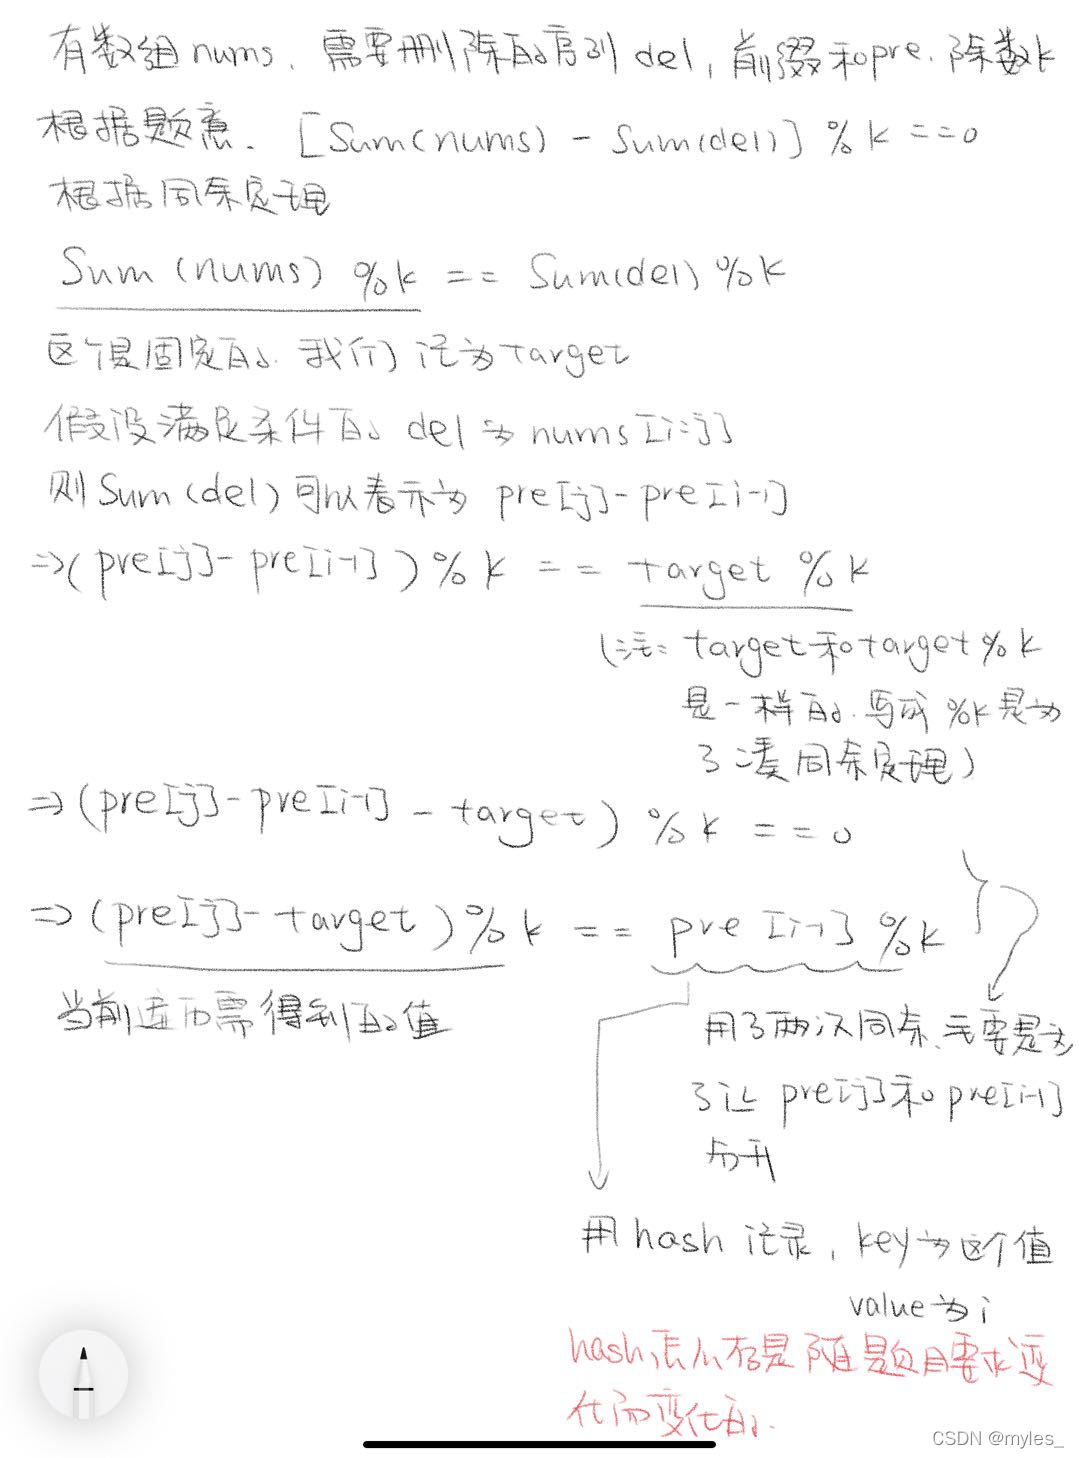 有数组nums, 需要删除的序列 del, 前缀和pre, 除数k
根据题意. [Sum(nums) - Sum(del)] % k ==0
根据同余定理
Sum (nums) %k == Sum(del) %k
这个是固定的. 我们 记为target
假设满足条件的 del 为 nums[i:j]
则 Sum (del) 可以表示为 pre[j]-pre[i-1]
=>(pre[j]- pre[i-1]) % k == target %k
(注: target和target%k
是一样的. 写成 %k是为
了凑同余定理)
=>(pre[j]-pre[i-1] - target) %k ==0
=>(pre[j]- target)%k == pre [i-1] %k
当前遍历需得到的值
用了两次同余, 主要是为
了让 pre[j]和pre[i-1]
分开
用hash 记录, key为这个值
value为i
hash怎么存是随题目需求变
化而变化的.
CSDN @myles_